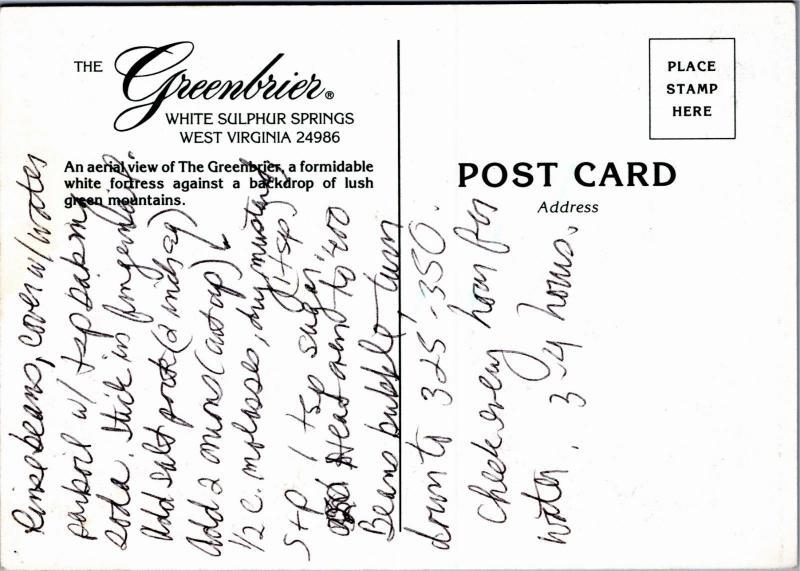 THE
Greenbrier®
WHITE SULPHUR SPRINGS
WEST VIRGINIA 24986
An aerial view of The Greenbrier, a formidable
white fortress against a backdrop of lush
green mountains.
PLACE
STAMP
HERE
POST CARD
Address
Rinse beans, cover w/ water
parboil w/ tsp baking
soda. Stick in fingernail.
Add salt pork (2 inch sq)
Add 2 onions (cut up)
1/2 c. molasses, dry mustard
S+P 1 tsp sugar. (1 tsp)
Heat oven to 400
Beans bubble, turn
down to 325-350.
Check every hour for
water. 3-4 hours.